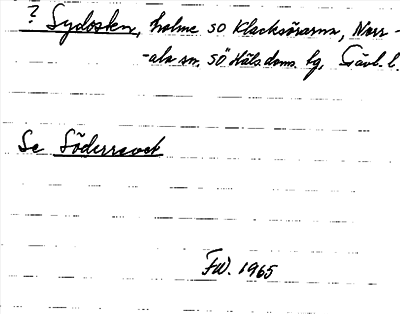 ? Sydosken, holme SO Klacksörarna, Norr-
-ala sn. SÖ Häls. doms. lg, Gävl. l.
Se Söderravet
FW. 1965